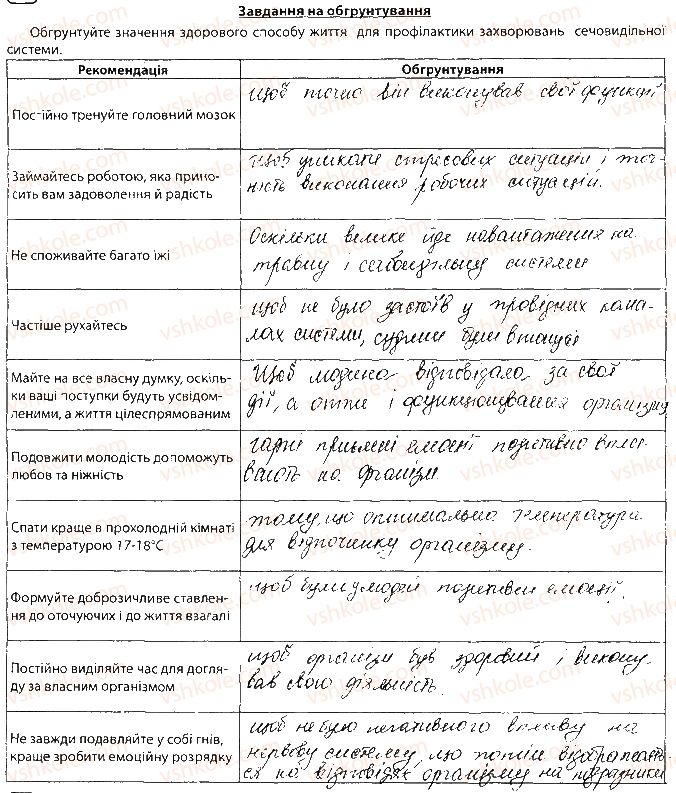 Завдання на обгрунтування
Обгрунтуйте значення здорового способу життя для профілактики захворювань сечовидільної
системи.
Рекомендація
Обгрунтування
Постійно тренуйте головний мозок
щоб точно він виконував свої функції
Займайтесь роботою, яка прино-
сить вам задоволення й радість
Щоб уникати стресових ситуацій і точ-
ність виконання робочих ситуацій.
Не споживайте багато їжі
Оскільки велике йде навантаження на
травну і сечовидільну системи
Частіше рухайтесь
щоб не було застоїв у провідних кана-
лах системи, судини були в тонусі
Майте на все власну думку, оскіль-
ки ваші поступки будуть усвідом-
леними, а життя цілеспрямованим
Щоб людина відповідала за свої
дії, а отже і функціонування організму
Подовжити молодість допоможуть
любов та ніжність
гарні приємні емоції позитивно впли-
вають на організм
Спати краще в прохолодній кімнаті
з температурою 17-18°С
тому, що оптимальна температура
для відпочинку організму.
Формуйте доброзичливе ставлен-
ня до оточуючих і до життя взагалі
щоб були у людей позитивні емоції.
Постійно виділяйте час для догля-
ду за власним організмом
щоб організм був здоровий і викону-
вав свою діяльність.
Не завжди подавляйте у собі гнів,
краще зробити емоційну розрядку
щоб не було негативного впливу на
нервову систему, що потім відбражаєть-
ся на відповідях організму на подразники
vshkole.com